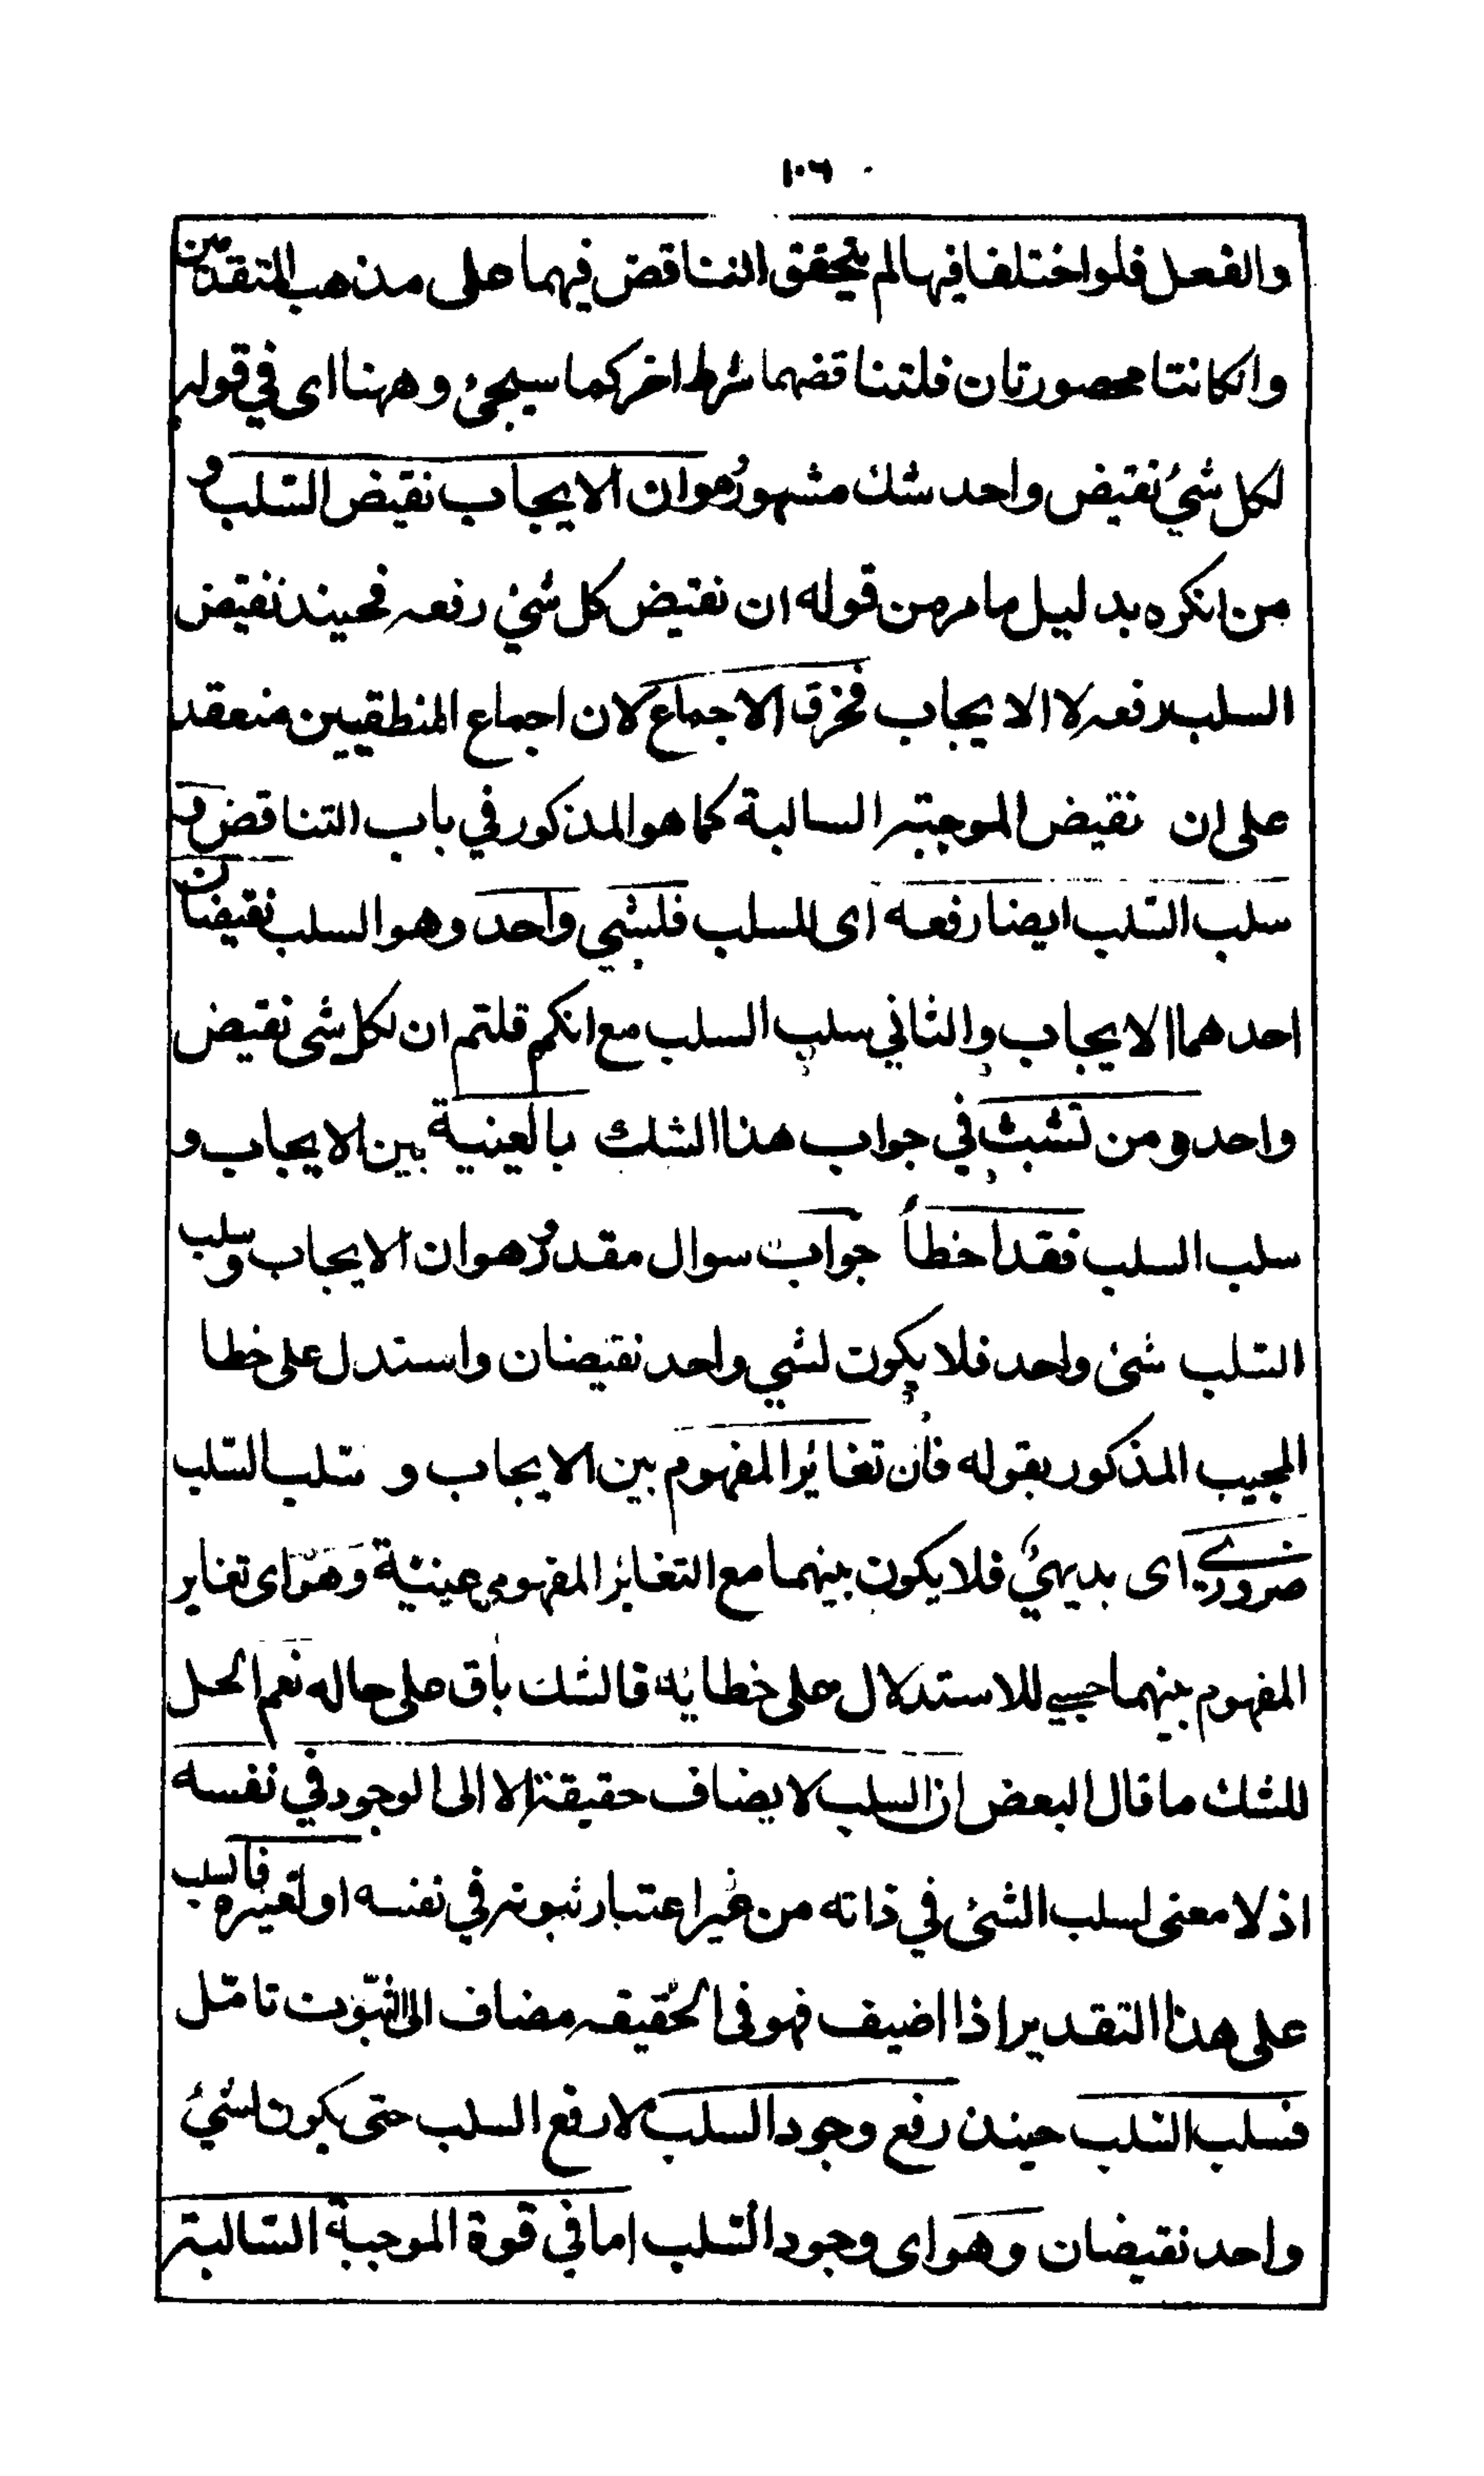 ١٠٦
والفعل فلو اختلفا فيها لم يتحقق التناقض فيهما على مذهب المتقدمين
وان كانتا محصورتان فلتناقضهما شرط اخر كما سيجئ وههنا اى في قوله
لكل شئ نقيض واحد شك مشهور وهو ان الايجاب نقيض السّلب و
من انكره بدليل ما مر من قوله ان نقيض كل شئ رفعه فحينئذ نقيض
السلب رفعه لا الايجاب فخرق الاجماع لان اجماع المنطقيين منعقد
على ان نقيض الموجبة السالبة كما هو المذكور في باب التناقض و
سلب السّلب ايضا رفعه اى للسلب فلشي واحد وهو السلب نقيضان
احدهما الايجاب والثاني سلب السلب مع انكم قلتم ان لكل شى نقيض
واحد ومن تشبث في جواب هذا الشك بالعينية بين الايجاب و
سلب السلب فقد اخطأ جواب سوال مقدر وهو ان الايجاب وسلب
السّلب شئ واحد فلا يكون لشي واحد نقيضان واستدل على خطا
المجيب المذكور بقوله فان تغائر المفهوم بين الايجاب و سّلب السّلب
ضرورے اى بديهيّ فلا يكون بينهما مع التغائر المفهومي عينيّة وهو اى تغاير
المفهوم بينهما حسبي للاستدلال على خطايه فالشك باق على حاله نعم الحل
للشك ما قال البعض ان السلب لا يضاف حقيقة الا الى الوجود في نفسه
اذ لا معنى لسلب الشئ في ذاته من غير اعتبار ثبوته في نفسه او لغيره فالسلب
على هذا التقدير اذا اضيف فهو فى الحقيقه مضاف الى الثبوت تامّل
فسلب السّلب حينئذ رفع وجود السلب لا رفع السلب حتى يكون لشئ
واحد نقيضان وهو اى وجود السّلب اما في قوة الموجبة السّالبة